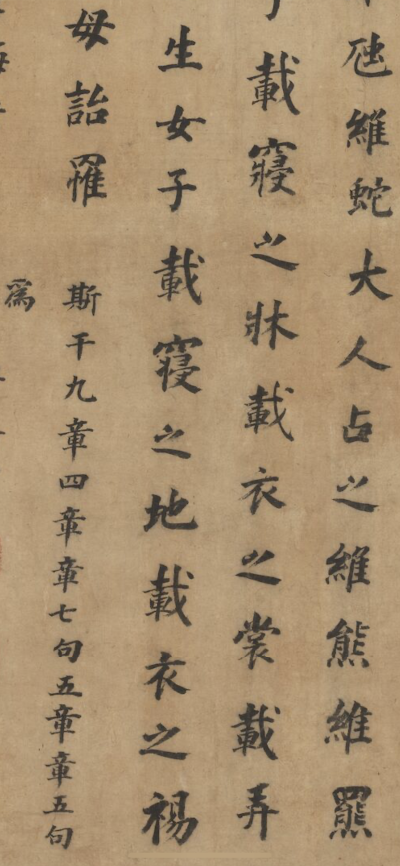 虺維蛇大人占之維熊維羆
載寢之牀載衣之裳載弄
生女子載寢之地載衣之裼
母詒罹 斯干九章四章章七句五章章五句
爲